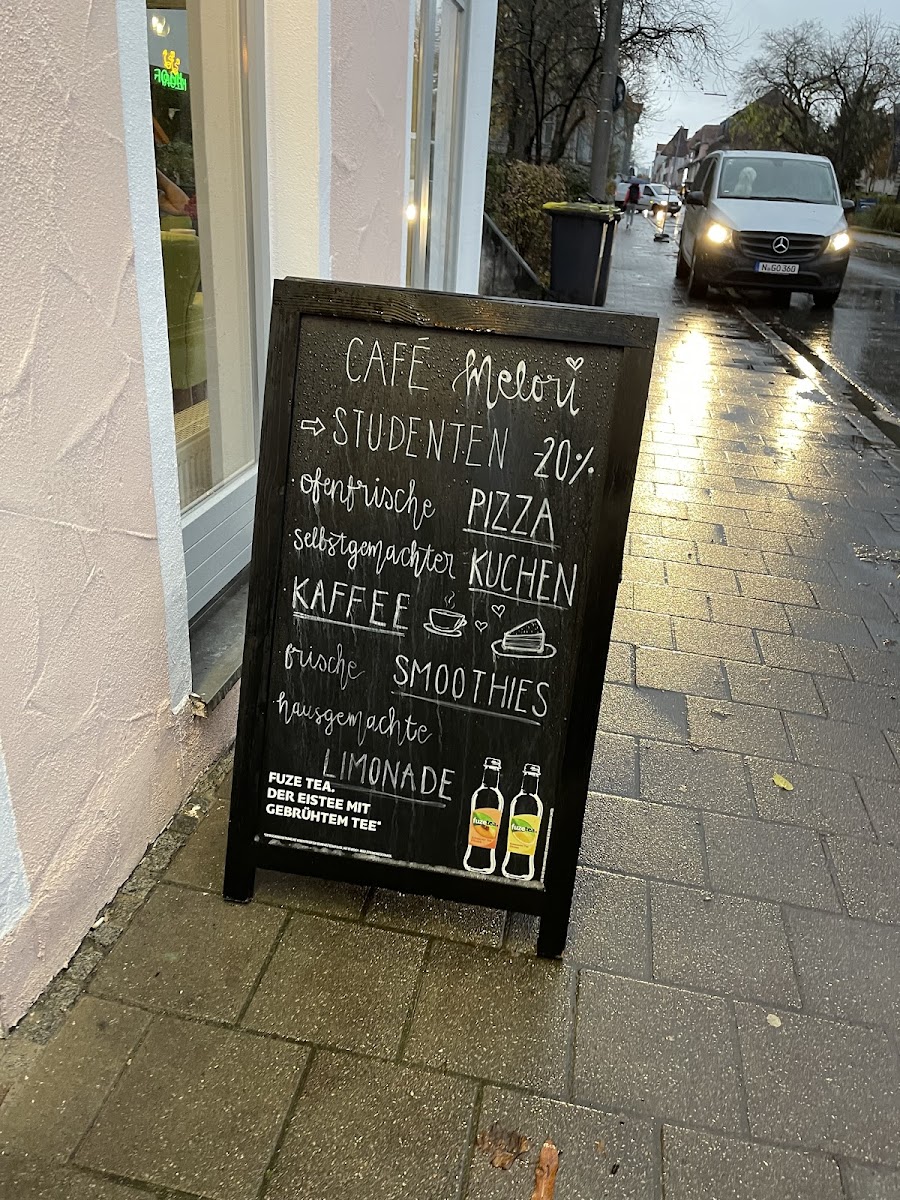 CAFÉ Melori
⇨ STUDENTEN -20%
· ofenfrische PIZZA
· selbstgemachter KUCHEN
· KAFFEE
· frische SMOOTHIES
· hausgemachte
LIMONADE
FUZE TEA.
DER EISTEE MIT
GEBRÜHTEM TEE*
fuze tea
fuze tea
N GO 360